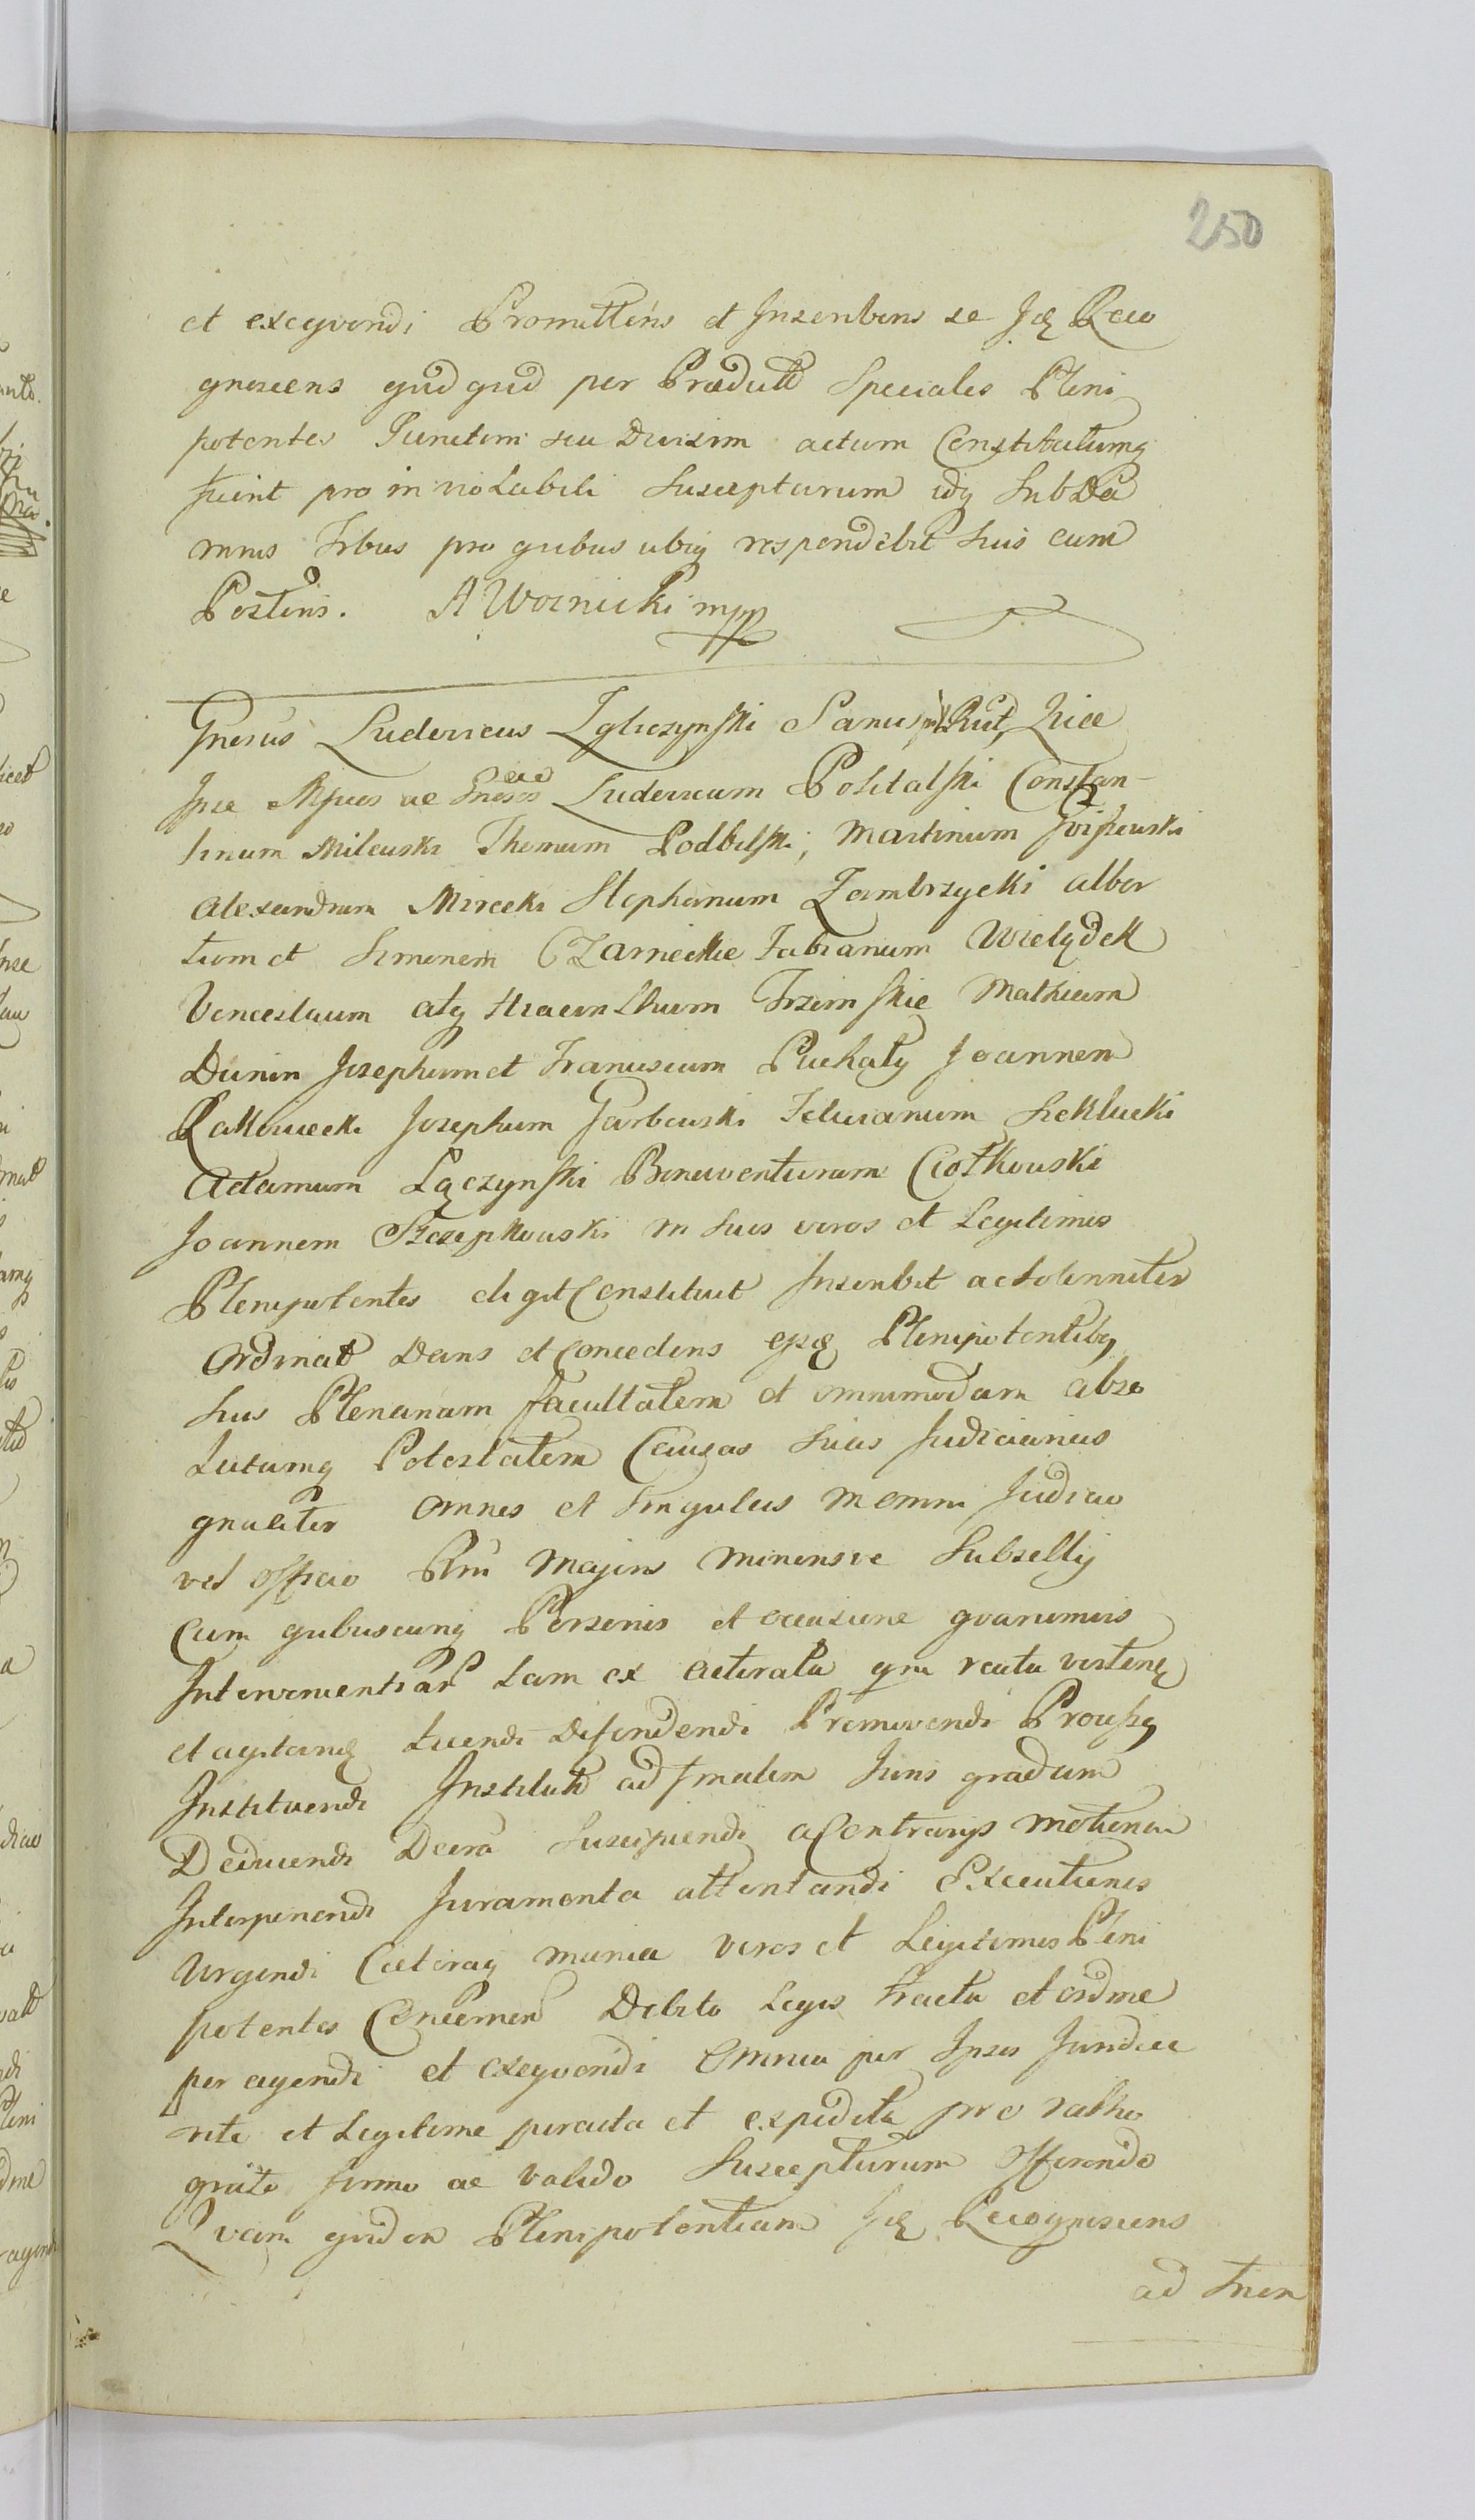 250
et exeqvendi Promittens et Inscribens se Idq Reco
gnoscens qvd qvid per Prædictt Speciales Pleni
potentes Iunctim seu Divisim actum Constitutumq
fuint pro inviolabili Suscepturum idq Sub Da
mnis Trbus pro qvibus ubiq respondebit Suis cum
Postteris. A Woznicki mpp
Gnerosus Ludovicus Zgliczynski Sanus Hice
Ipse Mgcos ac Gnosos Ludovicum Politalski Constan-
tinum Milewski Thomam Podbilski, Martinum
Alexandrum Mirecki Stephanum Zambrzycki Alber
tum et Simonem Czarneckie Fabianum Wielądek
Venceslaum atq Hiacinthum Trzcinskie Mathiam
Dunin Josephum et Franciscum Puchały Joannem
Rakowiecki Josephum Garbowski Felicianum Szeklucki
Adamum Łączynski Bonaventuram Ciołkowski
Joannem Szczepkowski in Suos veros et Legitimos
Plenipotentes eligit Constituit Inscribit ac Solenniter
Ordinat Dans et Concedens ejsq Plenipotentibq
Suis Plenariam facultatem et omnimodam abso
Lutamq Potestatem Causas Suas Judiciarias
gnaliter omnes et Singulas in omni Judicio
vel officio Rni Majoris Minorisve Subsellij
Cum qvibuscunq Personis et occasione qvarumvis
Intervenientiar tam ex Actoratu qm reatu vertenq
et agitanq tuendi Defendendi Promovendi Processq
Instituendi Institut ad finalem Juris gradum
Deducendi Decra Suscipiendi a Contrarijs Motionem
Interponendi Juramenta attentandi Executiones
Urgendi Caeteraq munia veros et Legitimos Pleni
potentes Concernen Debito Legis tractu et ordine
peragendi et exeqvendi Omnia per Ipsos Juridice
rite et Legitime peracta et expedita pro ratho
grato firmo ac valido Suscepturum Offerendo
Qvam qvidem Plenipotentiam Idq Recognoscens
ad Inen